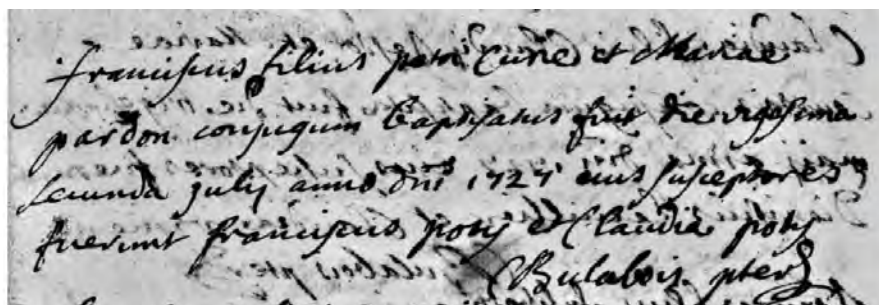 franciscus filius petri Cure et Mariae
pardon conjugum baptisatus fuit die vigesima
secunda julij anno dni 1727 eius susceptores
fuerunt franciscus poty et Claudia poty
Bulabois pter